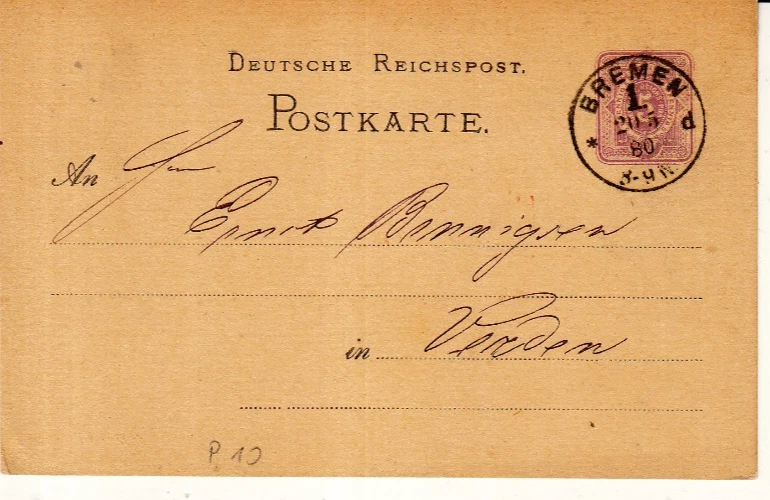 DEUTSCHE REICHSPOST.
POSTKARTE.
* BREMEN d
1.
20 5
80
8-9 N.
An Herrn
Ernst Bennigsen
in Verden
P. 10